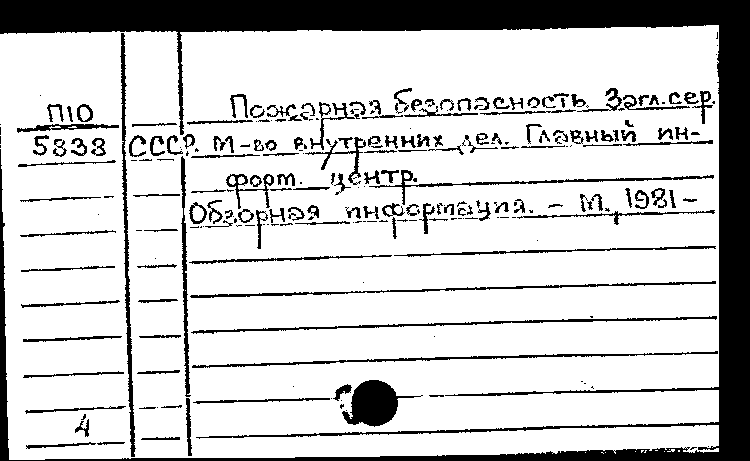 П10 Пожарная безопасность Загл.сер.
5838 СССР. М-во внутренних дел. Главный ин-
форм. центр.
Обзорная информация. - М., 1981-
4